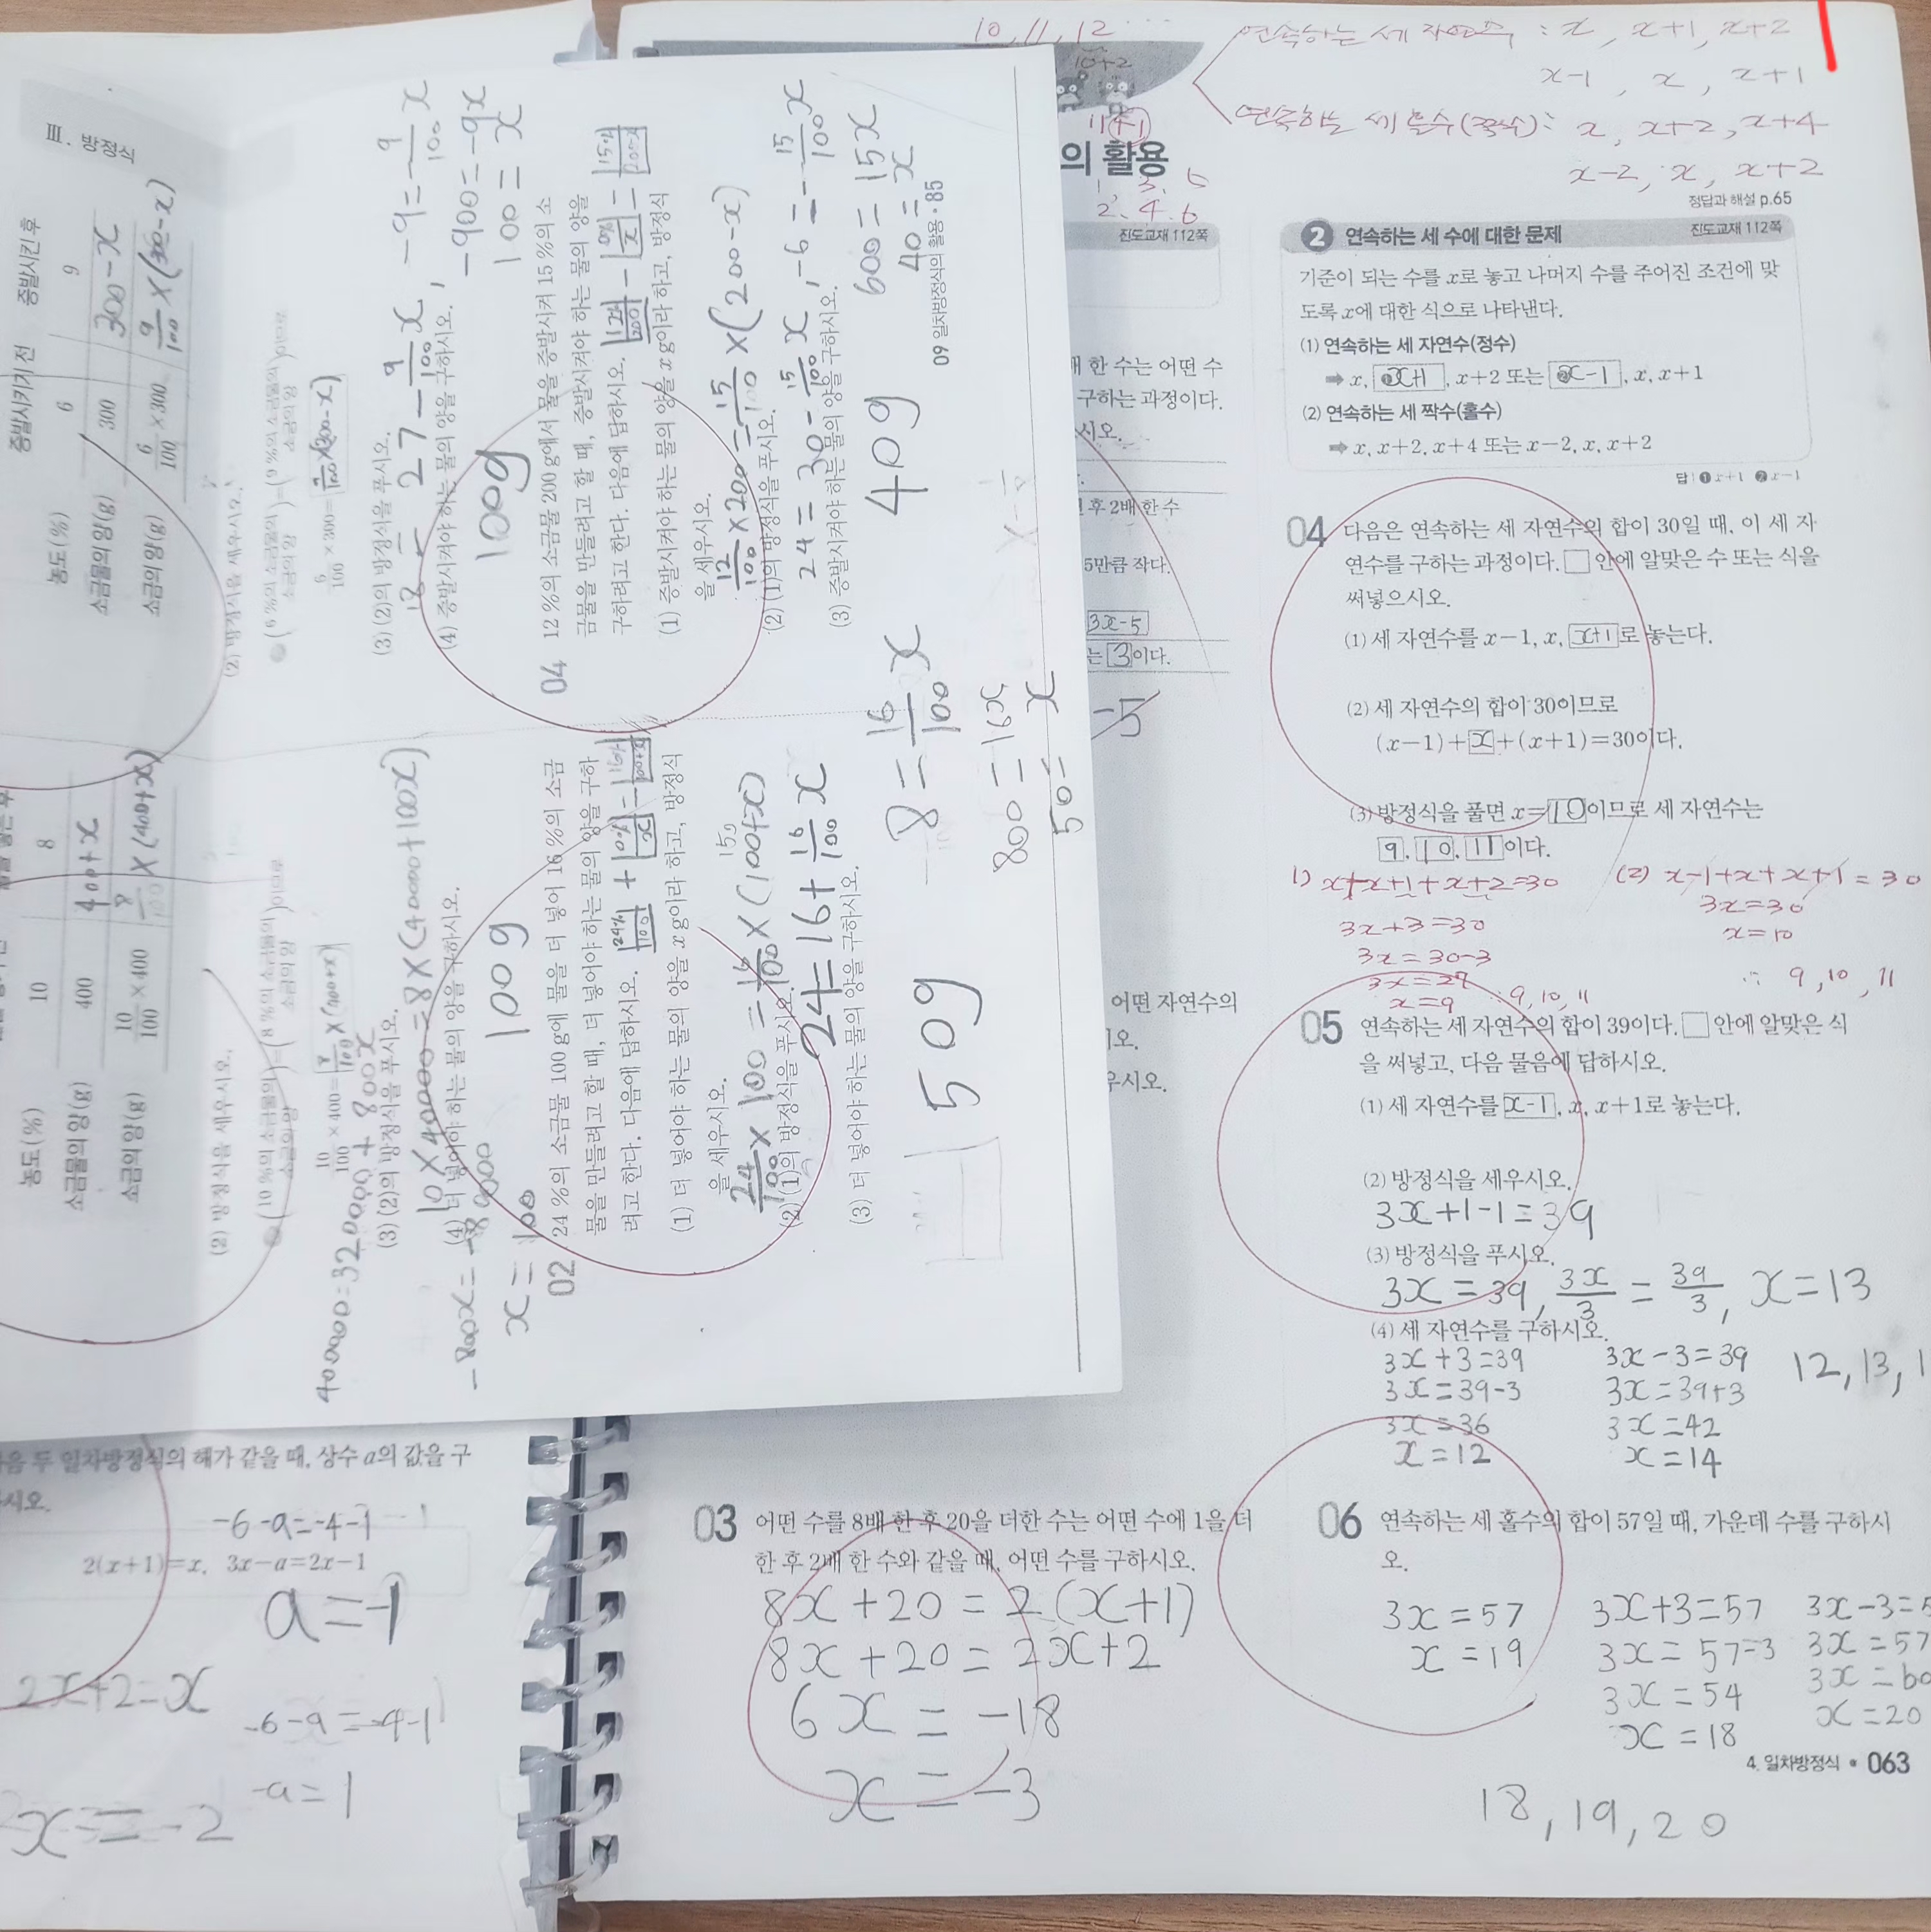 10, 11, 12 ...
10+2
연속하는 세 자연수 : x, x+1, x+2
x-1, x, x+1
연속하는 세 홀수(짝수) : x, x+2, x+4
x-2, x, x+2
11+1
의 활용
1, 3, 5
2, 4, 6
정답과 해설 p.65
진도교재 112쪽
2 연속하는 세 수에 대한 문제 진도교재 112쪽
기준이 되는 수를 x로 놓고 나머지 수를 주어진 조건에 맞
도록 x에 대한 식으로 나타낸다.
(1) 연속하는 세 자연수(정수)
➡ x, ❶x+1, x+2 또는 ❷x-1, x, x+1
(2) 연속하는 세 짝수(홀수)
➡ x, x+2, x+4 또는 x-2, x, x+2
답 ❶ x+1 ❷ x-1
04 다음은 연속하는 세 자연수의 합이 30일 때, 이 세 자
연수를 구하는 과정이다. □ 안에 알맞은 수 또는 식을
써넣으시오.
(1) 세 자연수를 x-1, x, x+1로 놓는다.
(2) 세 자연수의 합이 30이므로
(x-1)+x+(x+1)=30이다.
(3) 방정식을 풀면 x=10이므로 세 자연수는
9, 10, 11이다.
1) x+x+1+x+2=30
3x+3=30
3x=30-3
3x=27
x=9 9, 10, 11
(2) x-1+x+x+1=30
3x=30
x=10
∴ 9, 10, 11
05 연속하는 세 자연수의 합이 39이다. □ 안에 알맞은 식
을 써넣고, 다음 물음에 답하시오.
(1) 세 자연수를 x-1, x, x+1로 놓는다.
(2) 방정식을 세우시오.
3x+1-1=39
(3) 방정식을 푸시오.
3x=39, 3x/3=39/3, x=13
(4) 세 자연수를 구하시오.
3x+3=39
3x=39-3
3x=36
x=12
3x-3=39
3x=39+3
3x=42
x=14
12, 13, 1
06 연속하는 세 홀수의 합이 57일 때, 가운데 수를 구하시
오.
3x=57
x=19
3x+3=57
3x=57-3
3x=54
x=18
3x-3=5
3x=57
3x=60
x=20
4. 일차방정식 • 063
18, 19, 20
배 한 수는 어떤 수
구하는 과정이다.
시오.
후 2배 한 수
5만큼 작다.
3x-5
는 3이다.
어떤 자연수의
오.
우시오.
03 어떤 수를 8배 한 후 20을 더한 수는 어떤 수에 1을 더
한 후 2배 한 수와 같을 때, 어떤 수를 구하시오.
8x+20=2(x+1)
8x+20=2x+2
6x=-18
x=-3
음 두 일차방정식의 해가 같을 때, 상수 a의 값을 구
시오.
-6-a=-4-1
2(x+1)=x, 3x-a=2x-1
a=-1
2x+2=x
-6-a=-4-1
-a=1
x=-2
Ⅲ. 방정식
증발시키기 전 증발시킨 후
농도(%) 6 9
소금물의 양(g) 300 300-x
소금의 양(g) 6/100×300 9/100×(300-x)
(2) 방정식을 세우시오.
6/100×300=9/100×(300-x)
(3) (2)의 방정식을 푸시오.
18=27-9/100x, -9=-9/100x
-900=-9x
100=x
(4) 증발시켜야 하는 물의 양을 구하시오.
100g
04 12 %의 소금물 200 g에서 물을 증발시켜 15 %의 소
금물을 만들려고 할 때, 증발시켜야 하는 물의 양을
구하려고 한다. 다음에 답하시오.
(1) 증발시켜야 하는 물의 양을 x g이라 하고, 방정식
을 세우시오.
12/100×200=15/100×(200-x)
(2) (1)의 방정식을 푸시오.
24=30-15/100x, -6=-15/100x
600=15x
40=x
(3) 증발시켜야 하는 물의 양을 구하시오.
40g
09 일차방정식의 활용 • 85
농도(%) 10 8
소금물의 양(g) 400 400+x
소금의 양(g) 10/100×400 8/100×(400+x)
(2) 방정식을 세우시오.
10/100×400=8/100×(400+x)
(3) (2)의 방정식을 푸시오.
10×40000=8×(40000+100x)
400000=320000+800x
-800x=-80000
x=100
(4) 더 넣어야 하는 물의 양을 구하시오.
100g
02 24 %의 소금물 100 g에 물을 더 넣어 16 %의 소금
물을 만들려고 할 때, 더 넣어야 하는 물의 양을 구하
려고 한다. 다음에 답하시오.
(1) 더 넣어야 하는 물의 양을 x g이라 하고, 방정식
을 세우시오.
24/100×100=16/100×(100+x)
(2) (1)의 방정식을 푸시오.
24=16+16/100x
(3) 더 넣어야 하는 물의 양을 구하시오.
8=16/100x
800=16x
50=x
50g